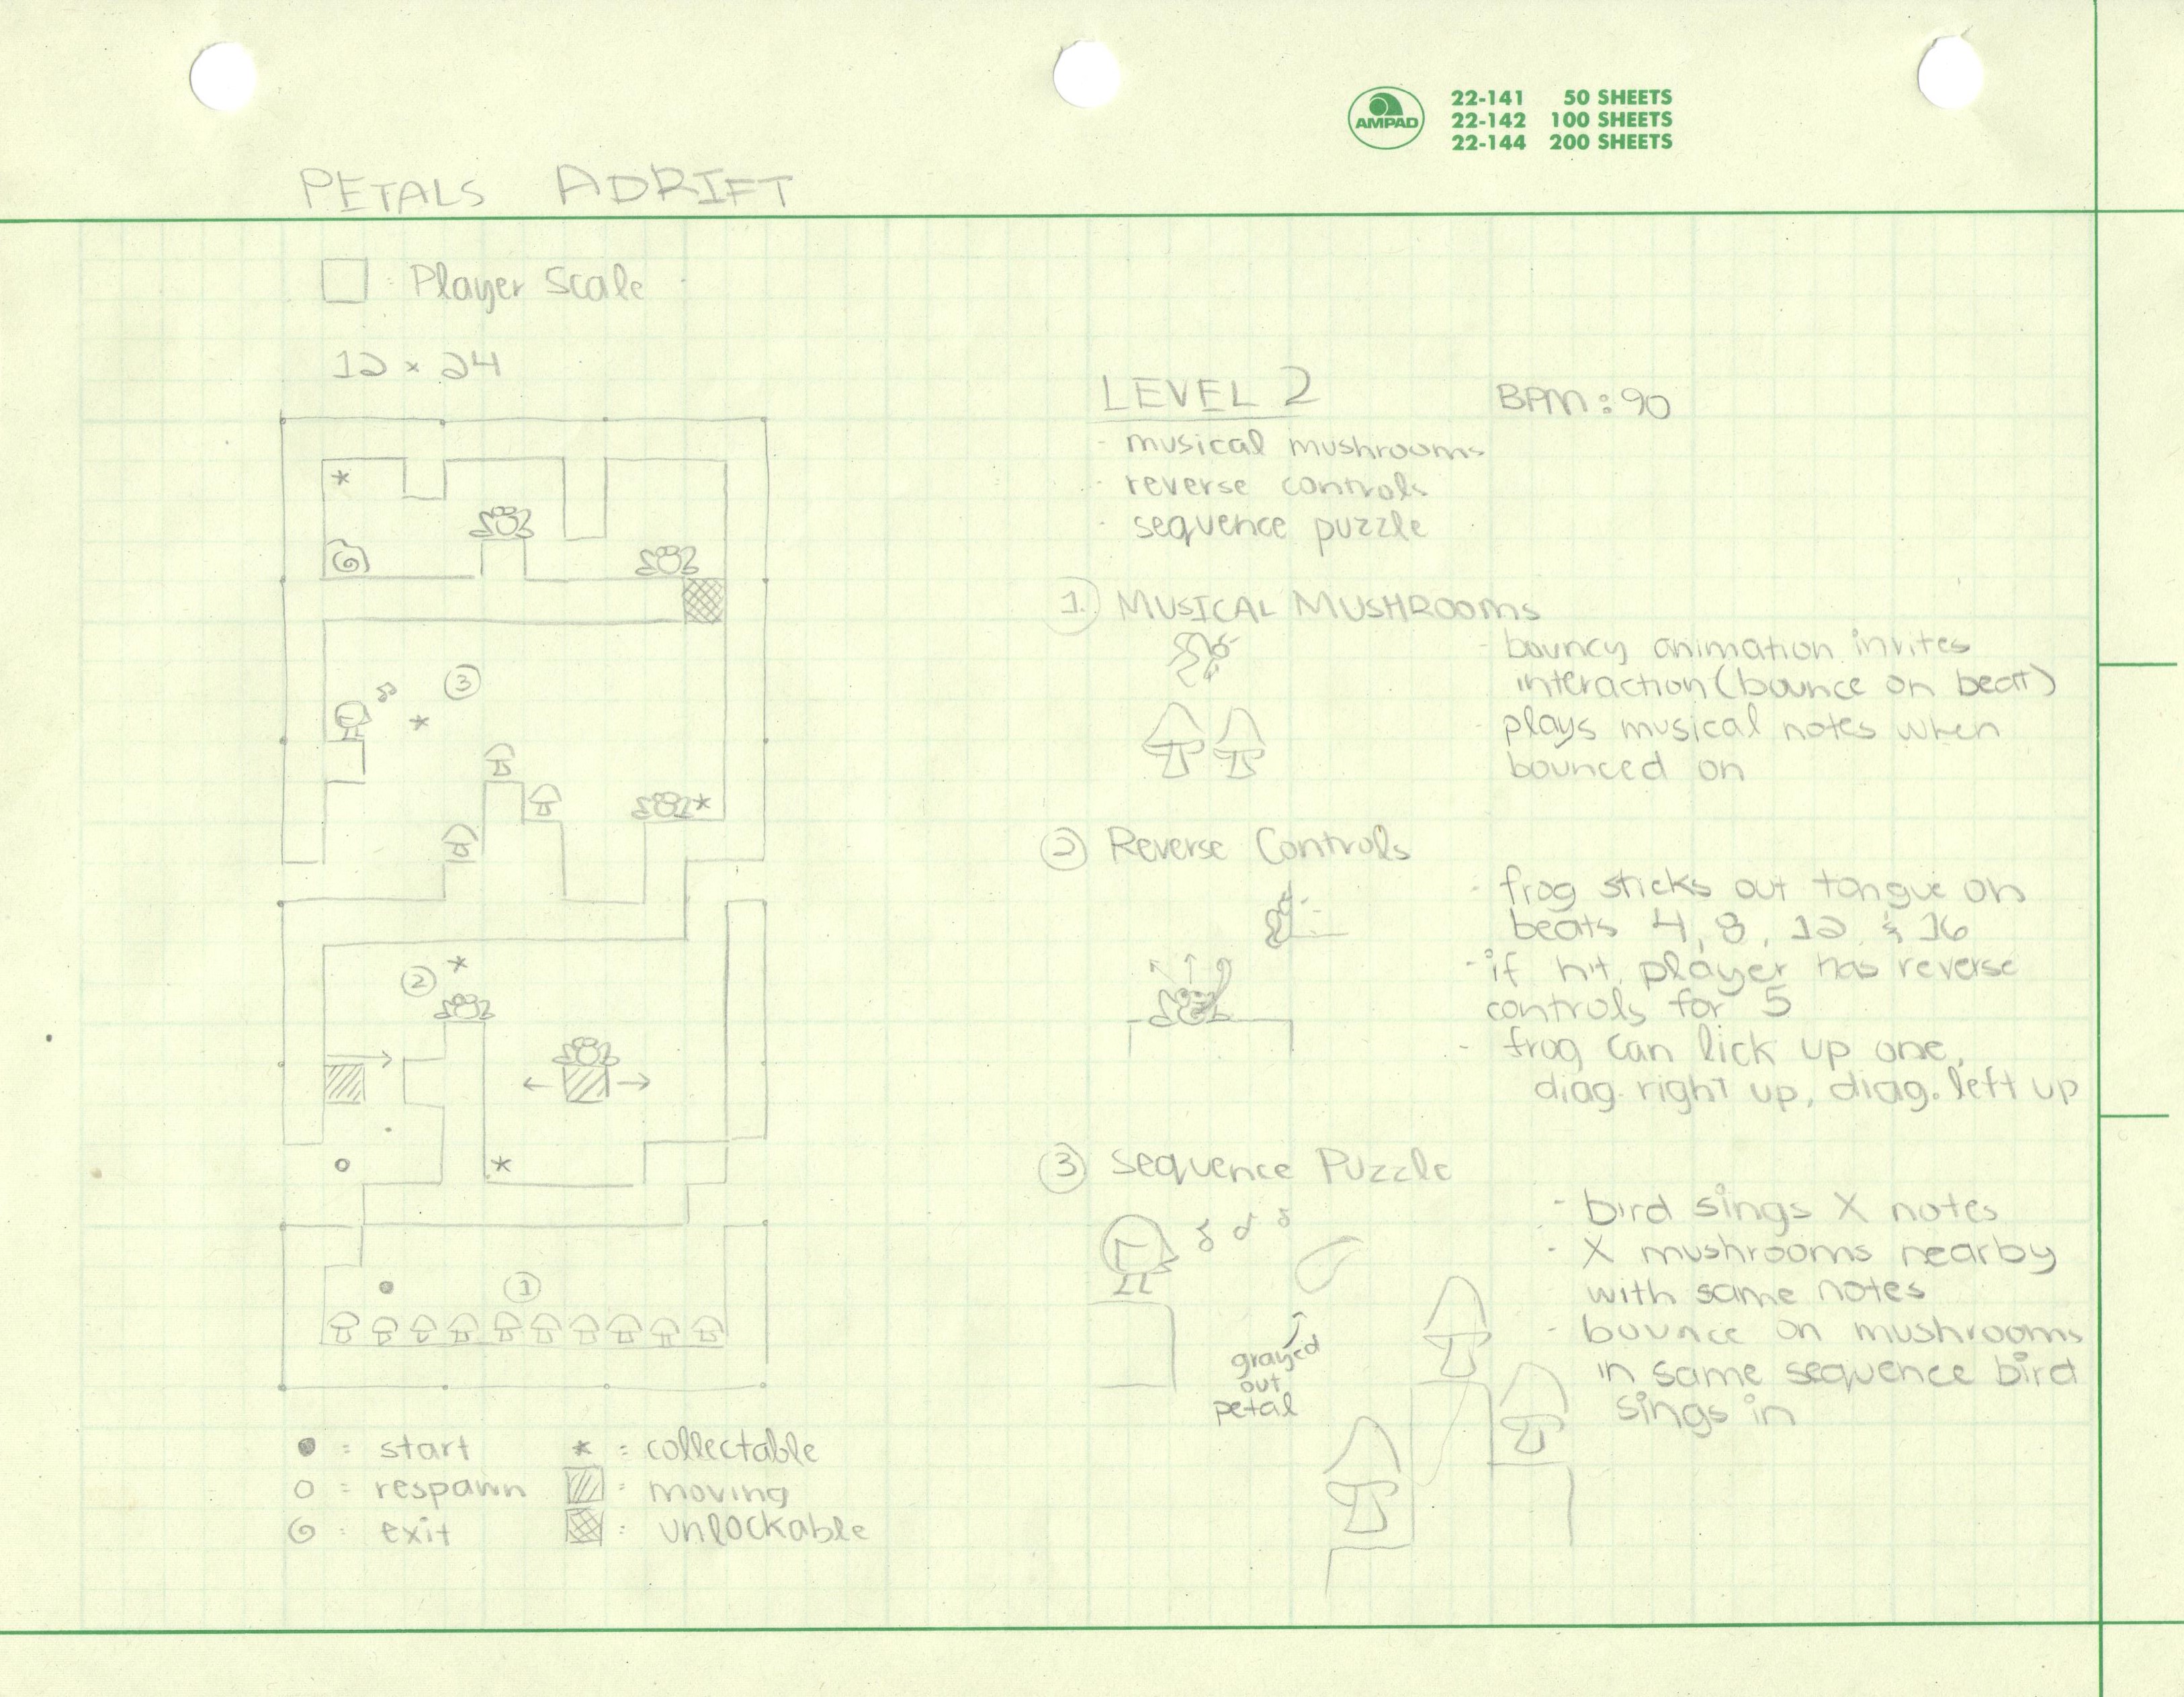 AMPAD
22-141 50 SHEETS
22-142 100 SHEETS
22-144 200 SHEETS
PETALS ADRIFT
: Player Scale
12 x 24
3
2
1
● : start
○ : respawn
: exit
* : collectable
: moving
: unlockable
LEVEL 2
BPM: 90
- musical mushrooms
- reverse controls
- sequence puzzle
1. MUSICAL MUSHROOMS
- bouncy animation invites
interaction (bounce on beat)
- plays musical notes when
bounced on
2 Reverse Controls
- frog sticks out tongue on
beats 4, 8, 12, & 16
- if hit, player has reverse
controls for 5
- frog can lick up one,
diag. right up, diag. left up
3 Sequence Puzzle
- bird sings X notes
- X mushrooms nearby
with same notes
- bounce on mushrooms
in same sequence bird
sings in
grayed
out
petal